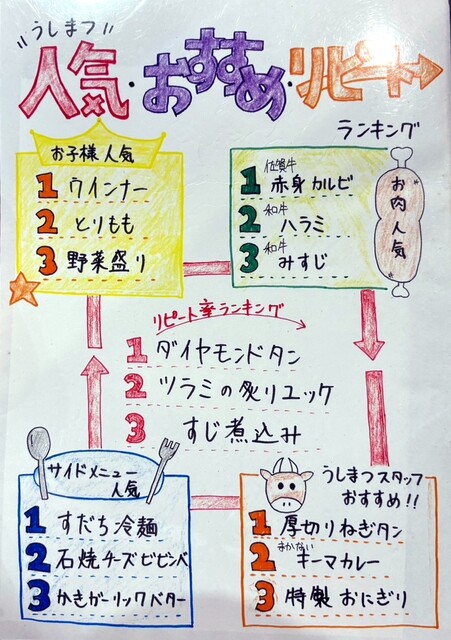 "うしまつ"
人気・おすすめ・リピート
ランキング
お子様人気
1 ウインナー
2 とりもも
3 野菜盛り
お肉人気
1 佐賀牛 赤身カルビ
2 和牛 ハラミ
3 和牛 みすじ
リピート率ランキング
1 ダイヤモンドタン
2 ツラミの炙りユッケ
3 すじ煮込み
サイドメニュー
人気
1 すだち冷麺
2 石焼チーズビビンバ
3 かきガーリックバター
うしまつスタッフ
おすすめ!!
1 厚切りねぎタン
2 まかない キーマカレー
3 特製おにぎり